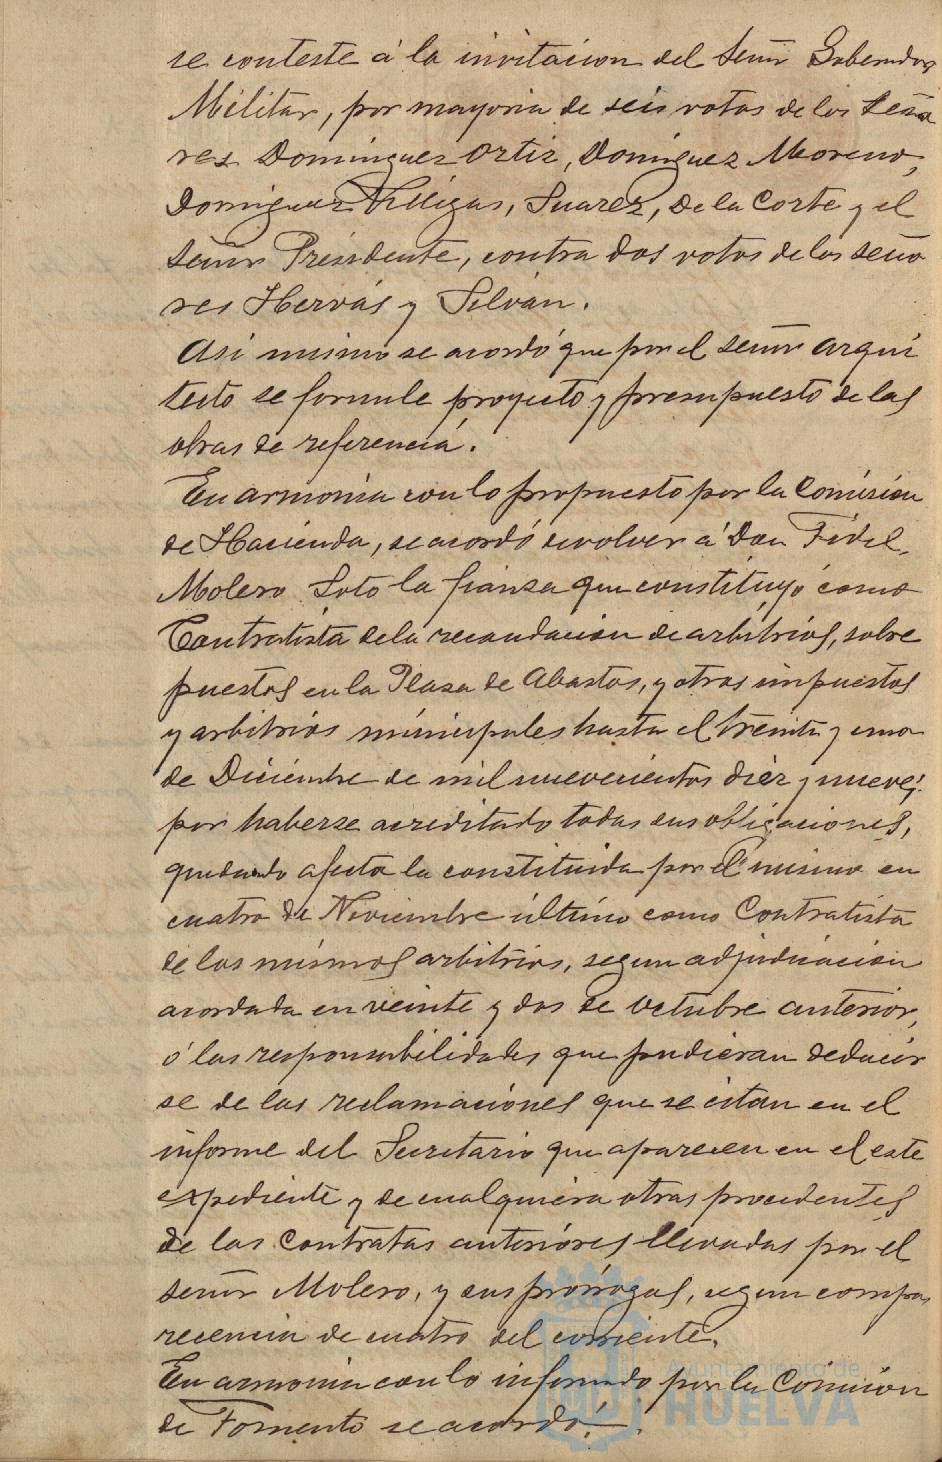 se conteste á la invitacion del señor Gobernador
Militar, por mayoria de seis votos de los Seño
res Dominguez Ortiz, Dominguez Moreno,
Dominguez Villegas, Suarez, De la Corte y el
señor Presidente, contra dos votos de los seño
res Hervás y Silván.
Asi mismo se acordó que por el señor arqui
tecto se formule proyecto y presupuesto de las
obras de referencia.
En armonia con lo propuesto por la Comision
de Hacienda, se acordó devolver á Don Fidel
Molero Soto la fianza que constituyó como
Contratista de la recaudacion de arbitrios, sobre
puestos en la Plaza de Abastos, y otros impuestos
y arbitrios municipales hasta el treinta y uno
de Diciembre de mil nuevecientos diez y nueve,
por haberse acreditado todas sus obligaciones,
quedando afecta la constituida por el mismo en
cuatro de Noviembre último como Contratista
de los mismos arbitrios, segun adjudicacion
acordada en veinte y dos de Octubre anterior,
á las responsabilidades que pudieran deducir
se de las reclamaciones que se citan en el
informe del Secretario que aparecen en el este
expediente y de cualquiera otras procedentes
de las Contratas anteriores llevadas por el
señor Molero, y sus prórrogas, segun compa
recencia de cuatro del corriente.
En armonia con lo informado por la Comision
de Fomento se acordó:
Ayuntamiento de
HUELVA